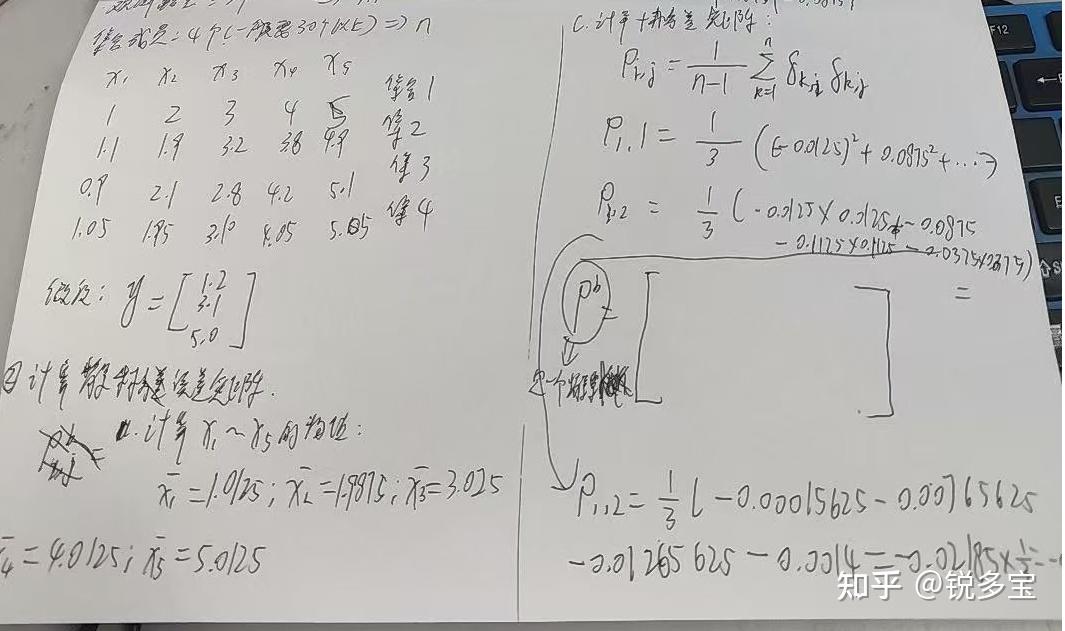 集合成员: 4个(一般需30个以上) => n
x1 x2 x3 x4 x5
1 2 3 4 5 集合1
1.1 1.9 3.2 3.8 4.9 集2
0.9 2.1 2.8 4.2 5.1 集3
1.05 1.95 3.10 4.05 5.05 集4
假设: y = [1.2
3.1
5.0]
② 计算 误差矩阵.
a. 计算 x1 ~ x5 的均值:
x̄1 = 1.0125; x̄2 = 1.9875; x̄3 = 3.025
x̄4 = 4.0125; x̄5 = 5.0125
C. 计算协方差矩阵:
Pi,j = 1/(n-1) Σ(k=1→n) δk,i δk,j
P1,1 = 1/3 ((-0.0125)² + 0.0875² + ...)
P1,2 = 1/3 (-0.0125 × 0.0125 - 0.0875
- 0.1125×0.1125 - 0.0375×0.0375)
P^b = [ ] =
P1,2 = 1/3 ( - 0.00015625 - 0.00765625
- 0.01265625 - 0.0014 = -0.02185 × 1/3 = -0
F12
知乎 @锐多宝